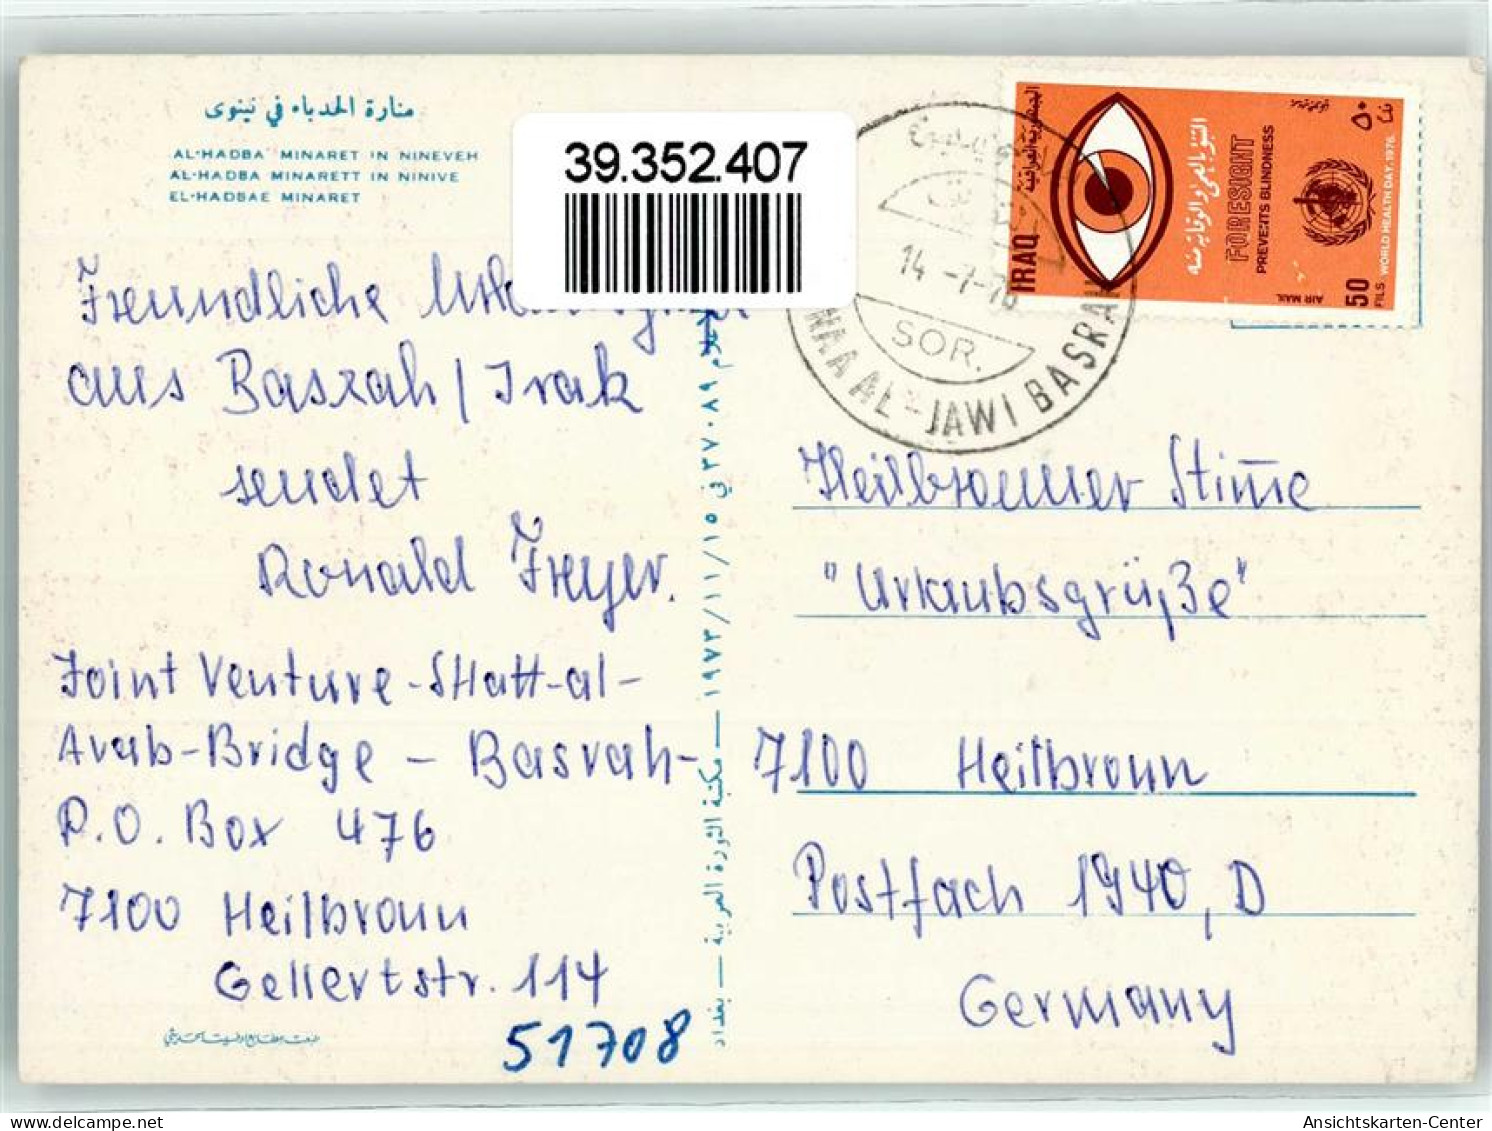 منارة الحدباء في نينوى
AL-HADBA MINARET IN NINEVEH
AL-HADBA MINARETT IN NINIVE
EL-HADBAE MINARET
39.352.407
Freundliche
aus Basrah / Irak
sendet
Ronald Freyer.
Joint Venture-SHatt-al-
Arab-Bridge - Basrah-
P.O. Box 476
7100 Heilbronn
Gellertstr. 114
51708
مكتبة الثورة العربية — بغداد
١٩٧٣/١١/١٥ في ٣٧٠٨٩
14-7-76
SOR.
AL-JAWI BASRAH
الجمهورية العراقية
IRAQ
FORESIGHT
PREVENTS BLINDNESS
WORLD HEALTH DAY.1976.
AIR MAIL
50
FILS
٥٠
فلسا
Heilbronner Stimme
"Urlaubsgrüße"
7100 Heilbronn
Postfach 1940, D
Germany
Ansichtskarten-Center